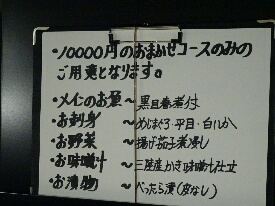 ・10000円のおまかせコースのみの
ご用意となります。
・メインのお魚〜黒目春煮付
・お刺身〜めじまぐろ・平目・白いか
・お野菜〜揚げ茄子煮浸し
・お味噌汁〜三陸産かき味噌汁仕立
・お漬物〜べったら漬(皮なし)